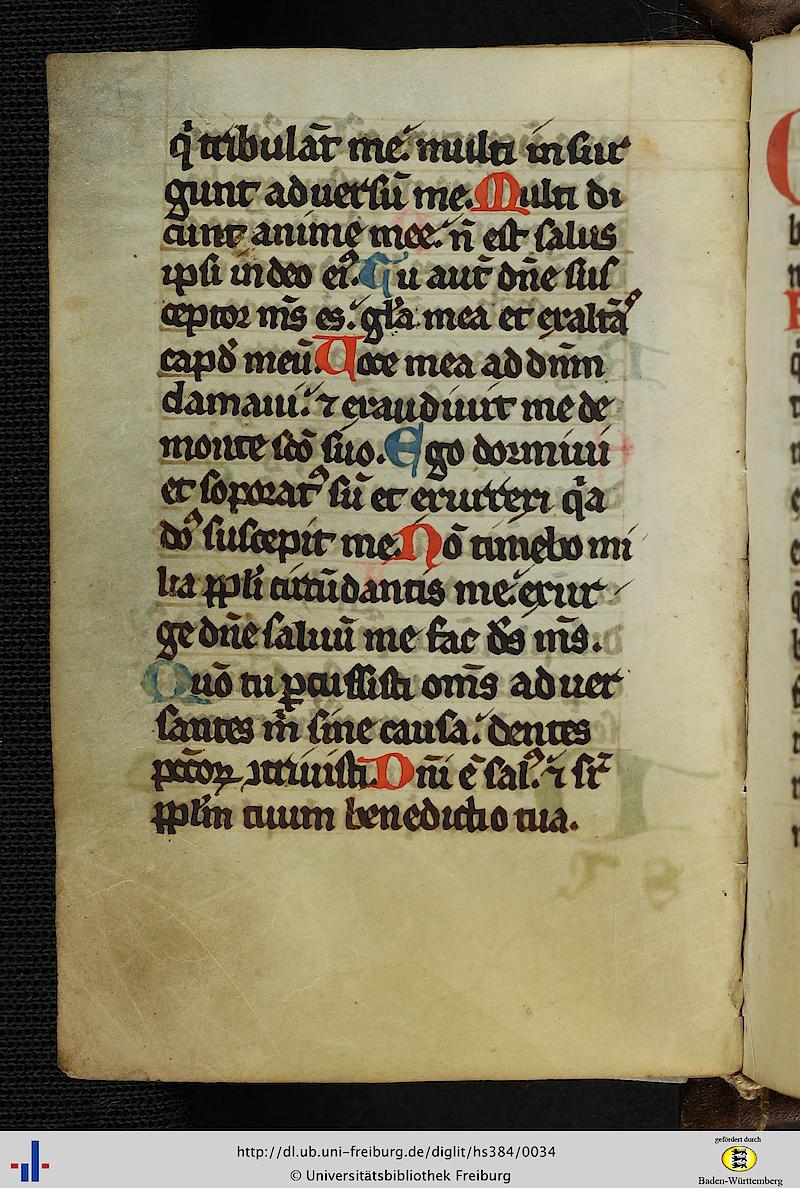 q̄i tribulāt me. multi insur
gunt aduersū me. Multi di
cunt anime mee. n̄ est salus
ipsi in deo ei⁹. Tu aut̄ dn̄e sus
ceptor m̄s es. gl̄a mea et exaltās
capđ meū. Uoce mea ad dn̄m
clamaui. ⁊ exaudiuit me de
monte sc̄o suo. Ego dormiui
et soporat⁹ sū et exurrexi q̄a
do⁹ suscepit me. Nō timebo mi
lia ꝓpl̄i circūdantis me. exur
ge dn̄e saluū me fac d̄s m̄s.
Quō tu ꝑcussisti om̄s aduer
santes m̄ sine causa. dentes
pcc̄oꝝ ↄtriuisti. Dn̄i ē sal⁹. ⁊ sr̄
ppl̄m tuum benedictio tua.
http://dl.ub.uni-freiburg.de/diglit/hs384/0034
© Universitätsbibliothek Freiburg
gefördert durch
Baden-Württemberg